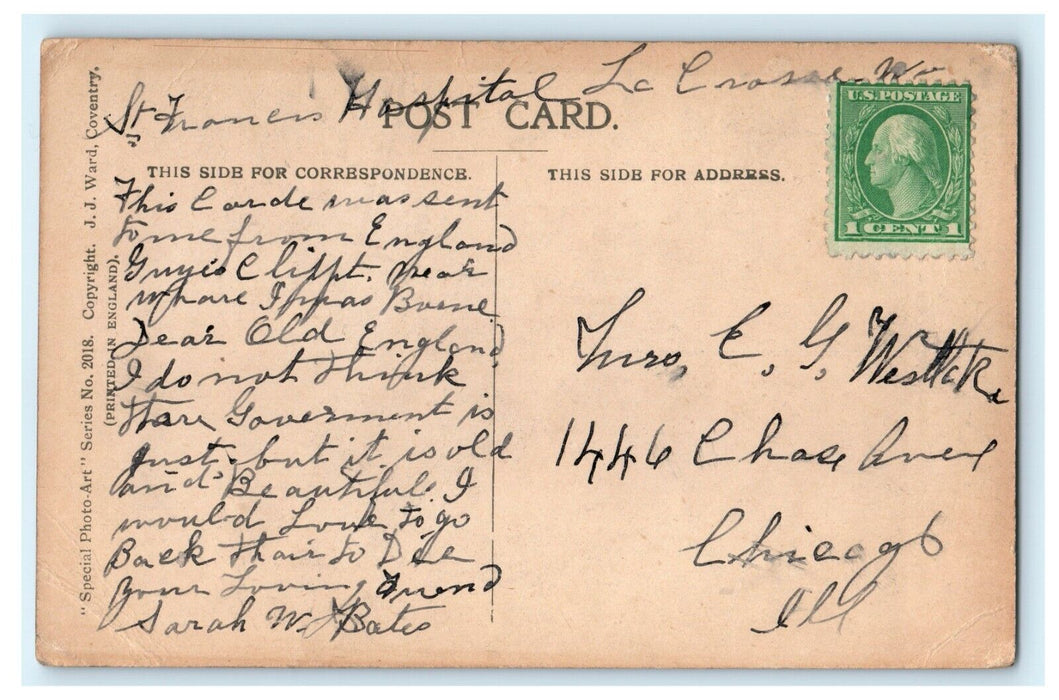 St Francis Hospital La Crosse Wis
POST CARD.
THIS SIDE FOR CORRESPONDENCE.
THIS SIDE FOR ADDRESS.
U.S. POSTAGE
1 CENT 1
This Carde was sent
to me from England
Guyes Clifft. near
whare I was Borne
Dear Old England
I do not think
thare Goverment is
just. but it is old
and Beautiful. I
would Love to go
Back thair to Die
your Loving Friend
Sarah W. Bates
Mrs, E. G. Westlake
1446 Chase Ave
Chicago
Ill
"Special Photo-Art" Series No. 2018. Copyright. J. J. Ward, Coventry.
(PRINTED IN ENGLAND).